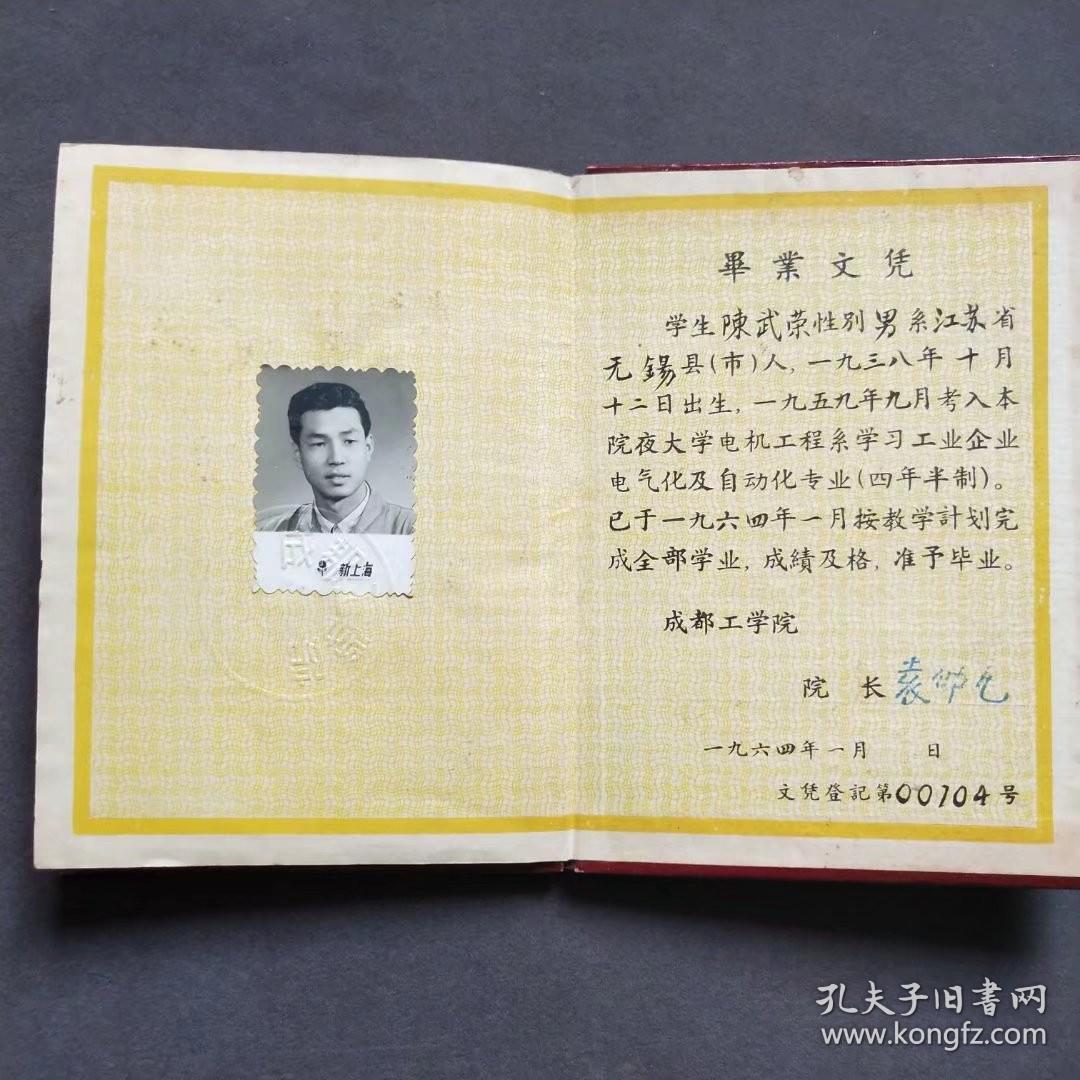 新上海
成都
畢業文凭
学生陳武荣性别男系江苏省
无錫县(市)人,一九三八年十月
十二日出生,一九五九年九月考入本
院夜大学电机工程系学习工业企业
电气化及自动化专业(四年半制)。
已于一九六四年一月按教学計划完
成全部学业,成績及格,准予毕业。
成都工学院
院 长 袁
一九六四年一月 日
文凭登記第00104号
孔夫子旧書网
www.kongfz.com